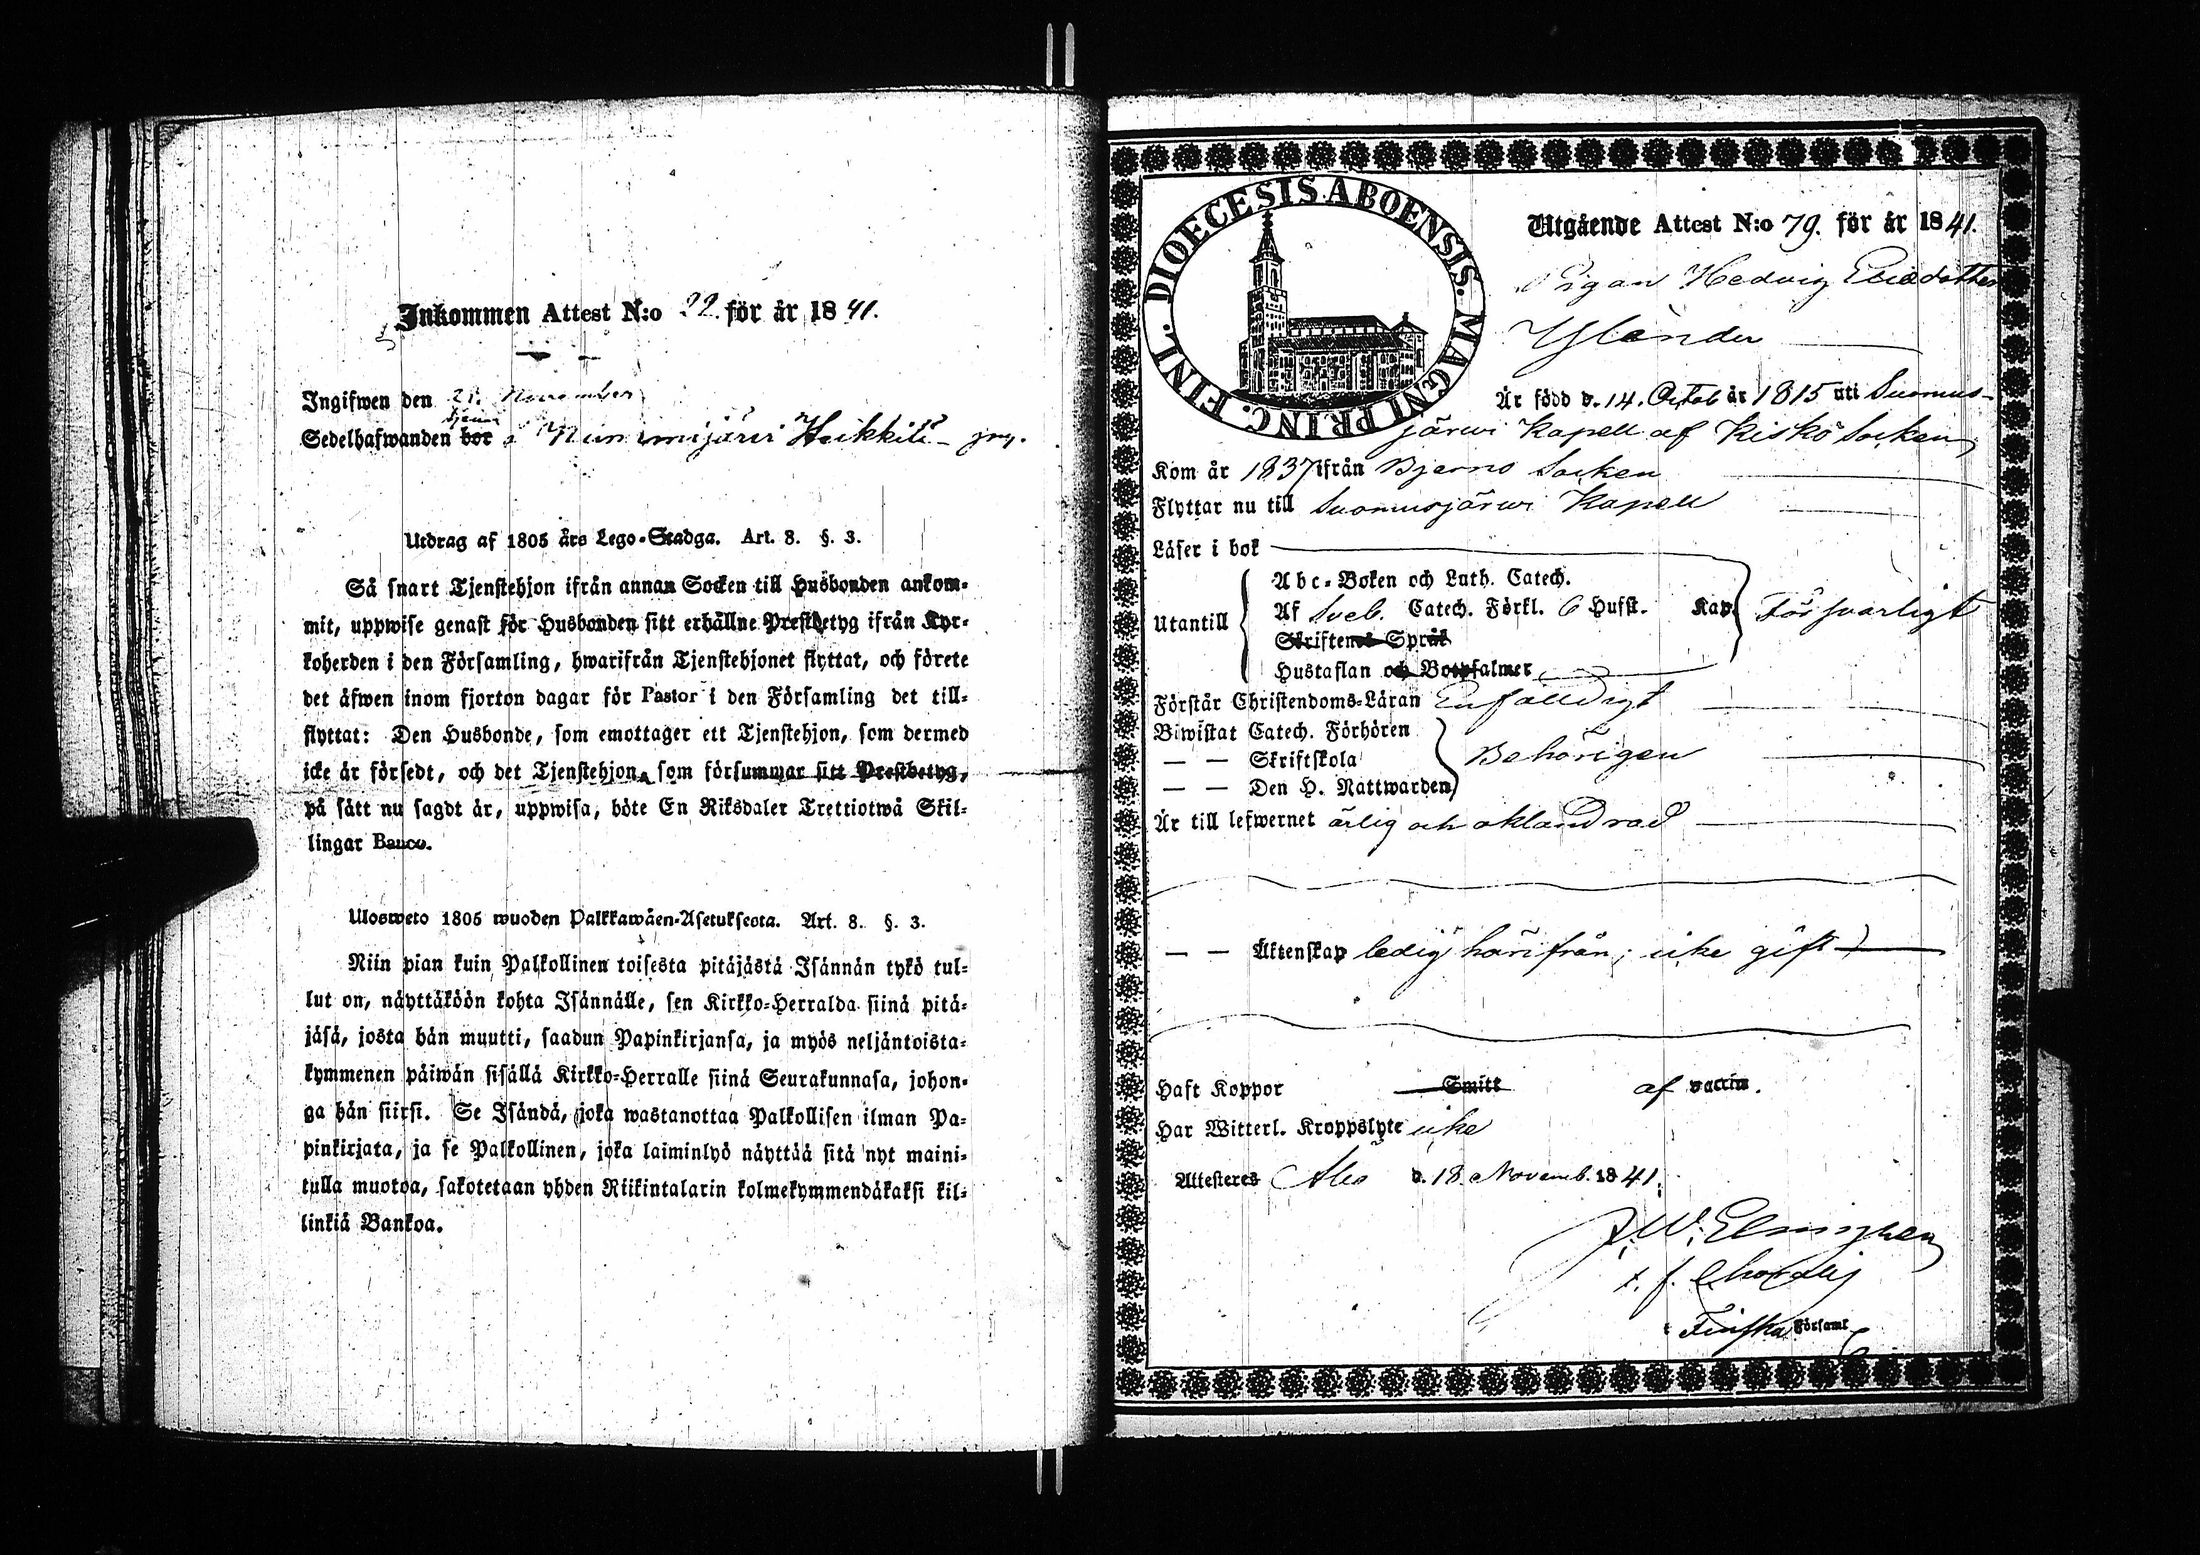 Inkommen Attest N:o 22. för år 1841.
Ingifwen den 21. November
tjenar
Sedelhafwanden bor å Nummijärvi Heikkilä
Utdrag af 1805 års Lego-Stadga. Art. 8. §. 3.
Så snart Tjenstehjon ifrån annan Socken till Husbonden ankom-
mit, uppwise genast för Husbonden sitt erhållne Prestbetyg ifrån Kyr-
koherden i den Församling, hwarifrån Tjenstehjonet flyttat, och förete
det äfwen inom fjorton dagar för Pastor i den Församling det till-
flyttat: Den Husbonde, som emottager ett Tjenstehjon, som dermed
icke är försedt, och det Tjenstehjon, som försummar sitt Prestbetyg,
på sätt nu sagdt är, uppwisa, böte En Riksdaler Trettiotwå Skil-
lingar Banco.
Ulosweto 1805 wuoden Palkkawäen-Asetuksesta. Art. 8. §. 3.
Niin pian kuin Palkollinen toisesta pitäjästä Isännän tykö tul-
lut on, näyttäköön kohta Isännälle, sen Kirkko-Herralda siinä pitä-
jäsä, josta hän muutti, saadun Papinkirjansa, ja myös neljäntoista-
kymmenen päiwän sisällä Kirkko-Herralle siinä Seurakunnasa, johon-
ga hän siirsi. Se Isändä, joka wastanottaa Palkollisen ilman Pa-
pinkirjata, ja se Palkollinen, joka laiminlyö näyttää sitä nyt maini-
tulla muotoa, sakotetaan yhden Riikintalarin kolmekymmendäkaksi kil-
linkiä Bankoa.
DIOECESIS ABOENSIS. MAGNI PRINC. FINL.
Utgående Attest N:o 79. för år 1841.
Pigan Hedvig Ericsdotter
Ylander
Är född d. 14. Octob år 1815 uti Suomus-
järwi Kapell af Kisko Socken
Kom år 1837 ifrån Bjerno Socken
Flyttar nu till Suomusjärwi Kapell
Läser i bok
Abc-Boken och Luth. Catech.
Utantill Af Sveb. Catech. Förkl. 6 Husst. Kap. Försvarligt
Skriftenes Språk
Hustaflan och Botpsalmer
Förstår Christendoms-Läran Enfalldigt
Biwistat Catech. Förhören
— — Skriftskola Behörigen
— — Den H. Nattwarden
Är till lefwernet ärlig och oklandrad
— — Äktenskap ledig härifrån; icke gift
Haft Koppor Smitt af vaccin.
Har Witterl. Kroppslyte icke
Attesteres Åbo d. 18. Novemb. 1841.
Finska Församl